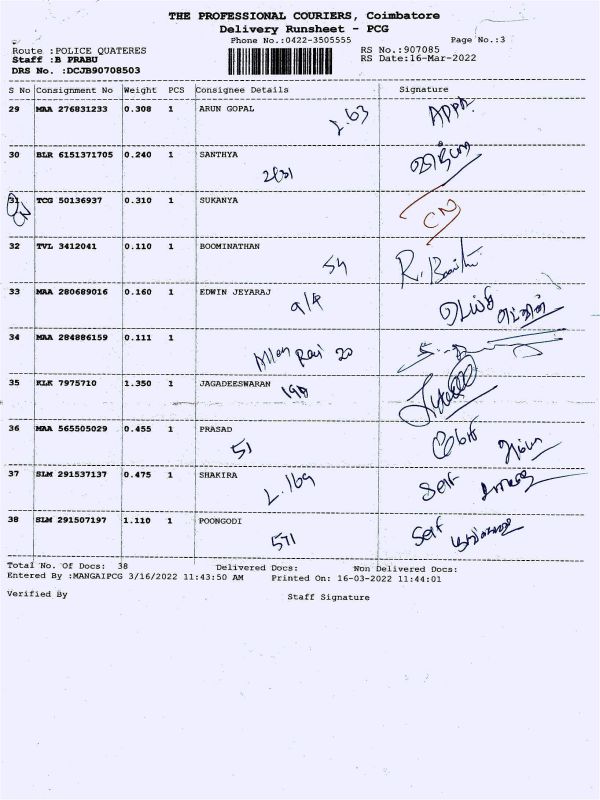 THE PROFESSIONAL COURIERS, Coimbatore
Delivery Runsheet - PCG
Phone No.:0422-3505555 Page No.:3
Route :POLICE QUATERES RS No.:907085
Staff :B PRABU RS Date:16-Mar-2022
DRS No. :DCJB90708503
S No Consignment No Weight PCS Consignee Details Signature
29 MAA 276831233 0.308 1 ARUN GOPAL
30 BLR 6151371705 0.240 1 SANTHYA
31 TCG 50136937 0.310 1 SUKANYA
CN CN
32 TVL 3412041 0.110 1 BOOMINATHAN
54
33 MAA 280689016 0.160 1 EDWIN JEYARAJ
34 MAA 284886159 0.111 1
20
35 KLK 7975710 1.350 1 JAGADEESWARAN
36 MAA 565505029 0.455 1 PRASAD
51
37 SLM 291537137 0.475 1 SHAKIRA
L.169 Self
38 SLM 291507197 1.110 1 POONGODI
571 Self
Total No. Of Docs: 38 Delivered Docs: Non Delivered Docs:
Entered By :MANGAIPCG 3/16/2022 11:43:50 AM Printed On: 16-03-2022 11:44:01
Verified By Staff Signature